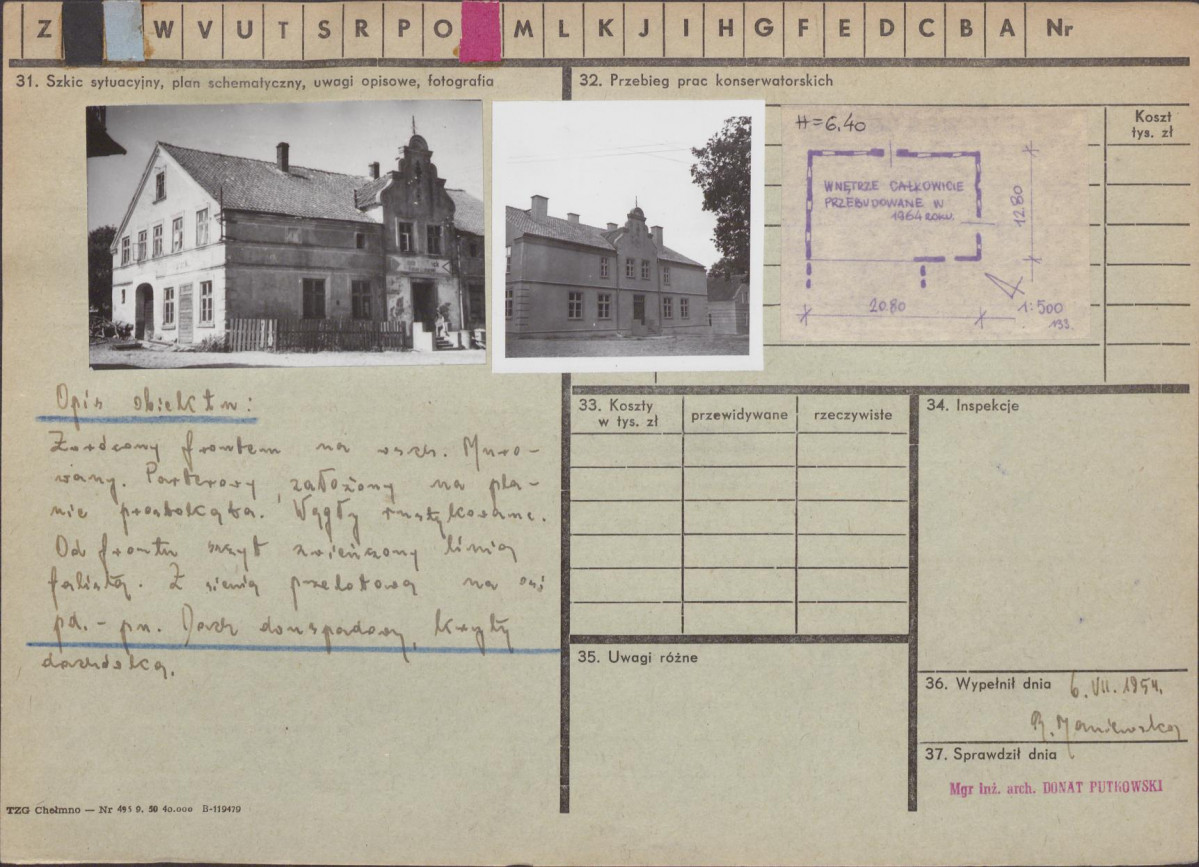 Z W V U T S R P O M L K J I H G F E D C B A Nr
31. Szkic sytuacyjny, plan schematyczny, uwagi opisowe, fotografia
32. Przebieg prac konserwatorskich
Koszt
tys. zł
H=6.40
WNĘTRZE CAŁKOWICIE
PRZEBUDOWANE W
1964 ROKU.
12.80
20.80
1:500
133.
Opis obiektu:
Zwrócony frontem na wsch. Muro-
wany. Parterowy, założony na pla-
nie prostokąta. Węgły rustykowane.
Od frontu szczyt zwieńczony linią
falistą. Z sienią przelotową na osi
pd.-pn. Dach dwuspadowy, kryty
dachówką.
33. Koszty
w tys. zł
przewidywane
rzeczywiste
34. Inspekcje
35. Uwagi różne
36. Wypełnił dnia 6.VII.1954.
37. Sprawdził dnia
Mgr Inż. arch. DONAT PUTKOWSKI
TZG Chełmno — Nr 495 9. 50 40.000 B-119479